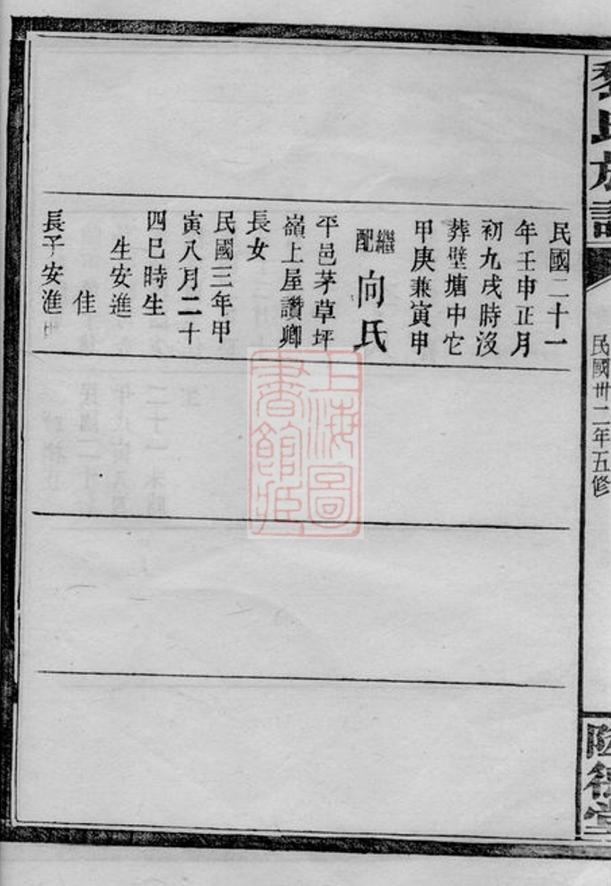 民國卅二年五修
民國二十一
年壬申正月
初九戌時沒
葬壁塘中它
甲庚兼寅申
繼配向氏
平邑茅草坪
嶺上屋讚卿
長女
民國三年甲
寅八月二十
四巳時生
生安進
佳
長子安進
上海圖書館藏